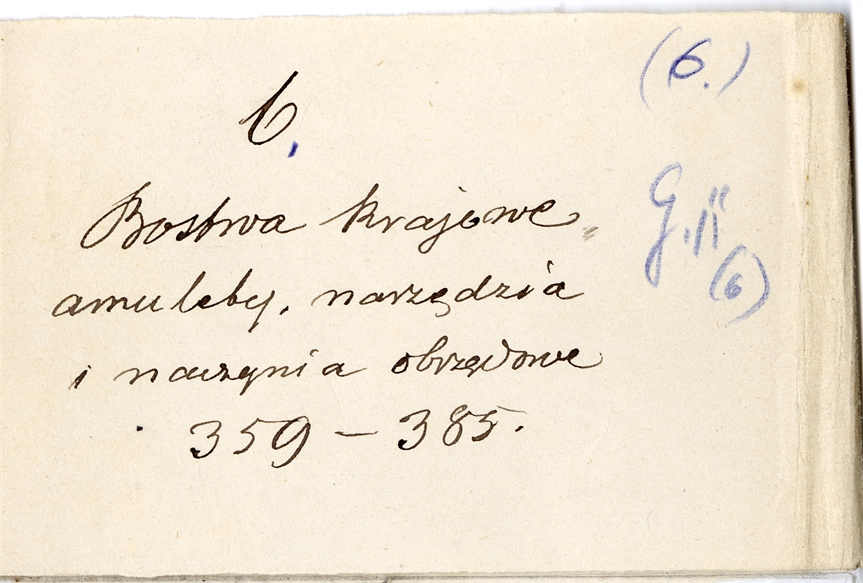 (6.)
6.
Bostwa krajowe,
amulety, narzędzia
i naczynia obrzędowe
359 – 385.
G. II
(6)